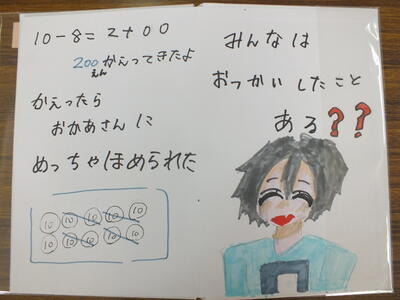 10-8=2+00
200かえってきたよ
えん
かえったら
おかあさんに
めっちゃほめられた
10 10 10 10 10
10 10 10 10 10
みんなは
おつかいしたこと
ある??